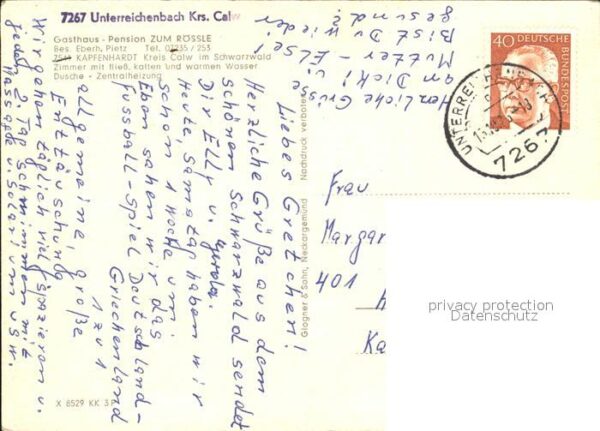 7267 Unterreichenbach Krs. Calw
Gasthaus - Pension ZUM RÖSSLE
Bes. Eberh. Pietz Tel. 07235 / 253
7541 KAPFENHARDT Kreis Calw im Schwarzwald
Zimmer mit fließ. kalten und warmen Wasser
Dusche - Zentralheizung
Liebes Gretchen!
Herzliche Grüße aus dem
schönen Schwarzwald sendet
Dir Elly u.
Heute Samstag haben wir
schon 1 Woche um.
Eben sahen wir das
Fussball-Spiel Deutschland-
Griechenland
1 zu 1
allgemeine, große
Enttäuschung
Wir gehen täglich viel spazieren u.
jeden 2. Tag schwimmen mit
Massage u. Solarium usw.
Herzliche Grüsse
an Dich! u.
Mutter - Else!
Bist Du wieder
gesund?
Glogner & Sohn, Neckargemünd
Nachdruck verboten
X 8529 KK 3
40
DEUTSCHE
BUNDESPOST
UNTERREICHENBACH
7267
Frau
Margar
401 H
Ka
privacy protection
Datenschutz